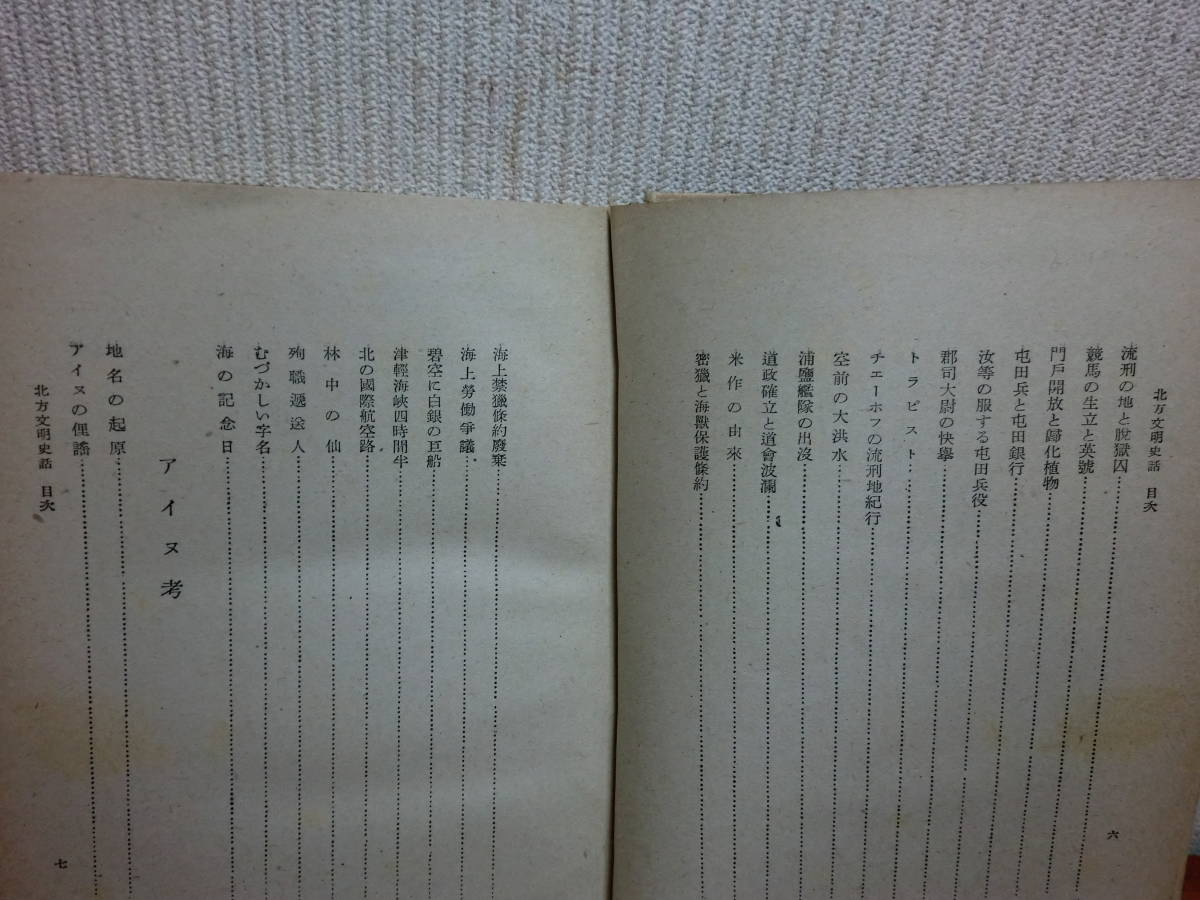 北方文明史話 目次
流刑の地と脫獄囚
競馬の生立と英號
門戶開放と歸化植物
屯田兵と屯田銀行
汝等の服する屯田兵役
郡司大尉の快擧
トラピスト
チエーホフの流刑地紀行
空前の大洪水
浦鹽艦隊の出沒
道政確立と道會波瀾
米作の由來
密獵と海獸保護條約
六
海上禁獵條約廢棄
海上勞働爭議
碧空に白銀の巨船
津輕海峽四時間半
北の國際航空路
林中の仙
殉職遞送人
むづかしい字名
海の記念日
アイヌ考
地名の起原
アイヌの俚謠
北方文明史話 目次
七